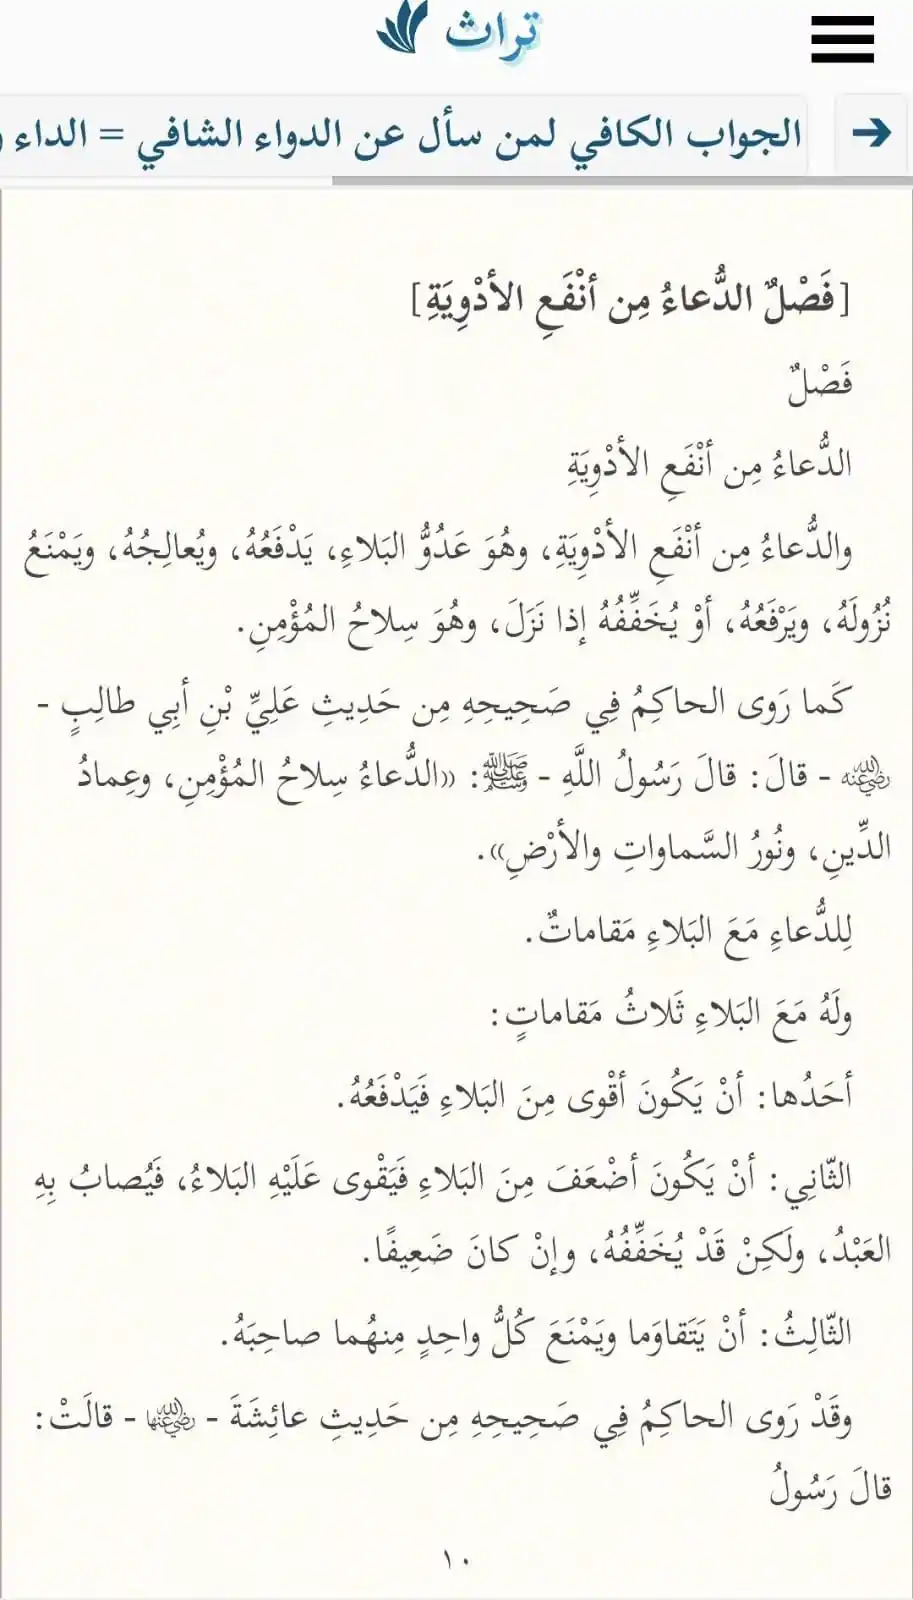 تراث
الجواب الكافي لمن سأل عن الدواء الشافي = الداء
[فَصْلٌ الدُّعاءُ مِن أنْفَعِ الأدْوِيَةِ]
فَصْلٌ
الدُّعاءُ مِن أنْفَعِ الأدْوِيَةِ
والدُّعاءُ مِن أنْفَعِ الأدْوِيَةِ، وهُوَ عَدُوُّ البَلاءِ، يَدْفَعُهُ، ويُعالِجُهُ، ويَمْنَعُ
نُزُولَهُ، ويَرْفَعُهُ، أوْ يُخَفِّفُهُ إذا نَزَلَ، وهُوَ سِلاحُ المُؤْمِنِ.
كَما رَوى الحاكِمُ فِي صَحِيحِهِ مِن حَدِيثِ عَلِيِّ بْنِ أبِي طالِبٍ -
﵁ - قالَ: قالَ رَسُولُ اللَّهِ - ﷺ: «الدُّعاءُ سِلاحُ المُؤْمِنِ، وعِمادُ
الدِّينِ، ونُورُ السَّماواتِ والأرْضِ».
لِلدُّعاءِ مَعَ البَلاءِ مَقاماتٌ.
ولَهُ مَعَ البَلاءِ ثَلاثُ مَقاماتٍ:
أحَدُها: أنْ يَكُونَ أقْوى مِنَ البَلاءِ فَيَدْفَعُهُ.
الثّانِي: أنْ يَكُونَ أضْعَفَ مِنَ البَلاءِ فَيَقْوى عَلَيْهِ البَلاءُ، فَيُصابُ بِهِ
العَبْدُ، ولَكِنْ قَدْ يُخَفِّفُهُ، وإنْ كانَ ضَعِيفًا.
الثّالِثُ: أنْ يَتَقاوَما ويَمْنَعَ كُلُّ واحِدٍ مِنهُما صاحِبَهُ.
وقَدْ رَوى الحاكِمُ فِي صَحِيحِهِ مِن حَدِيثِ عائِشَةَ - ﵂ - قالَتْ:
قالَ رَسُولُ
١٠